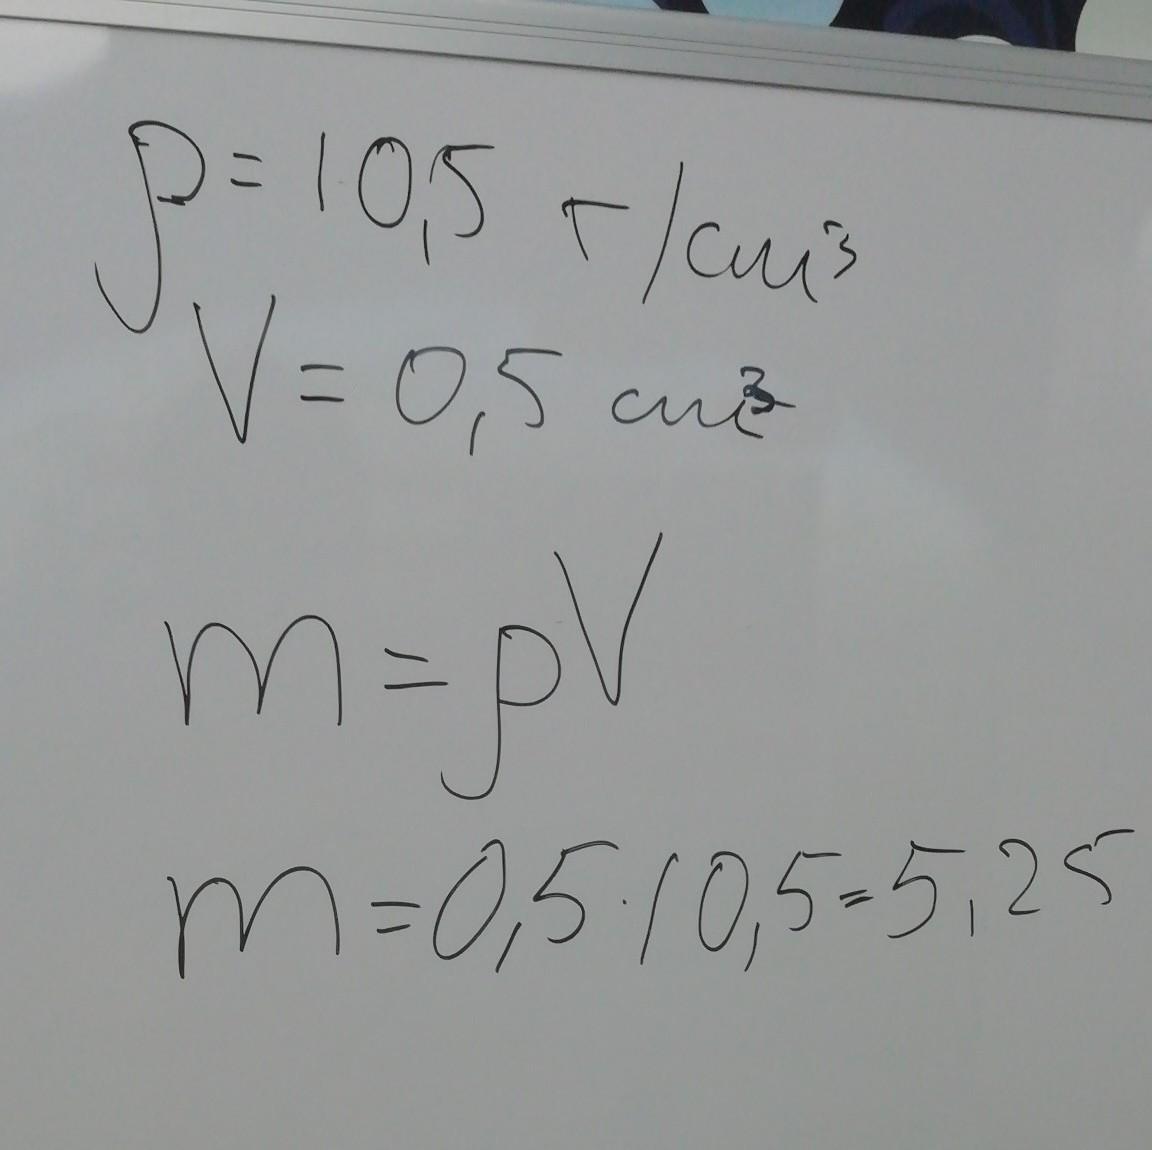 ρ = 10,5 г/см³
V = 0,5 см³
m = ρV
m = 0,5 · 10,5 = 5,25